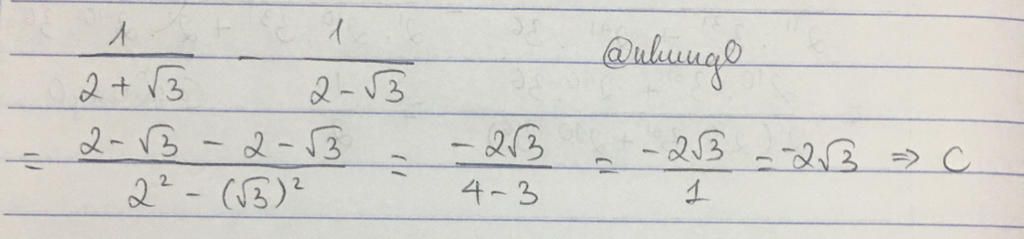 1/(2 + √3) - 1/(2 - √3) @nhung0
= (2 - √3 - 2 - √3)/(2² - (√3)²) = (-2√3)/(4 - 3) = (-2√3)/1 = -2√3 ⇒ C